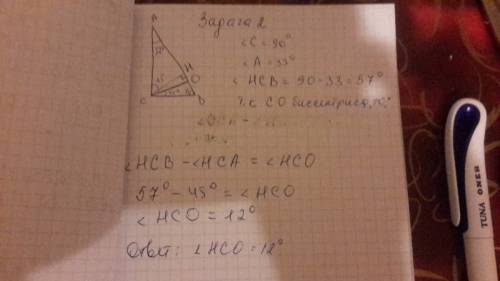 Задача 2
A
33°
∠C = 90°
∠A = 33°
H
O
45
∠HCB = 90 - 33 = 57°
C
B
т.к CO биссектриса, то:
∠HCB - ∠HCA = ∠HCO
57° - 45° = ∠HCO
∠HCO = 12°
Ответ: ∠HCO = 12°
TUNA OBER